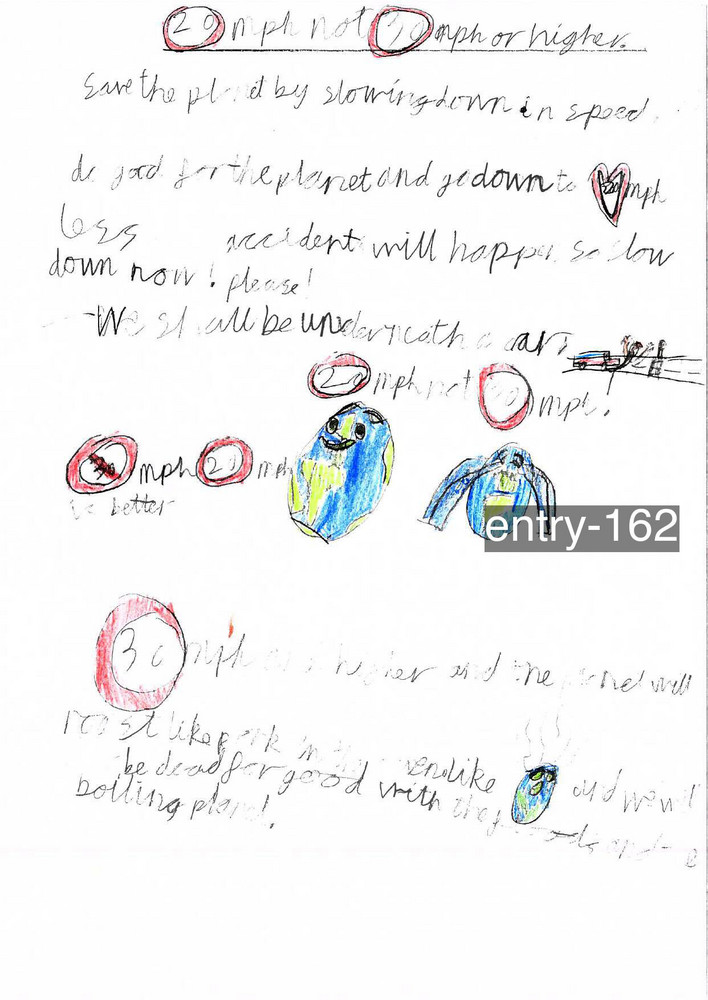 20 mph not 30 mph or higher.
Save the planet by slowing down in speed.
do good for the planet and go down to 20 mph
less accident will happen so slow
down now! please!
We shall be underneath a car
20 mph not 30 mph!
30 mph 20 mph
is better
entry-162
30 mph higher and the planet will
roast like pork in the oven like and we will
be dead for good with the
boiling planet.